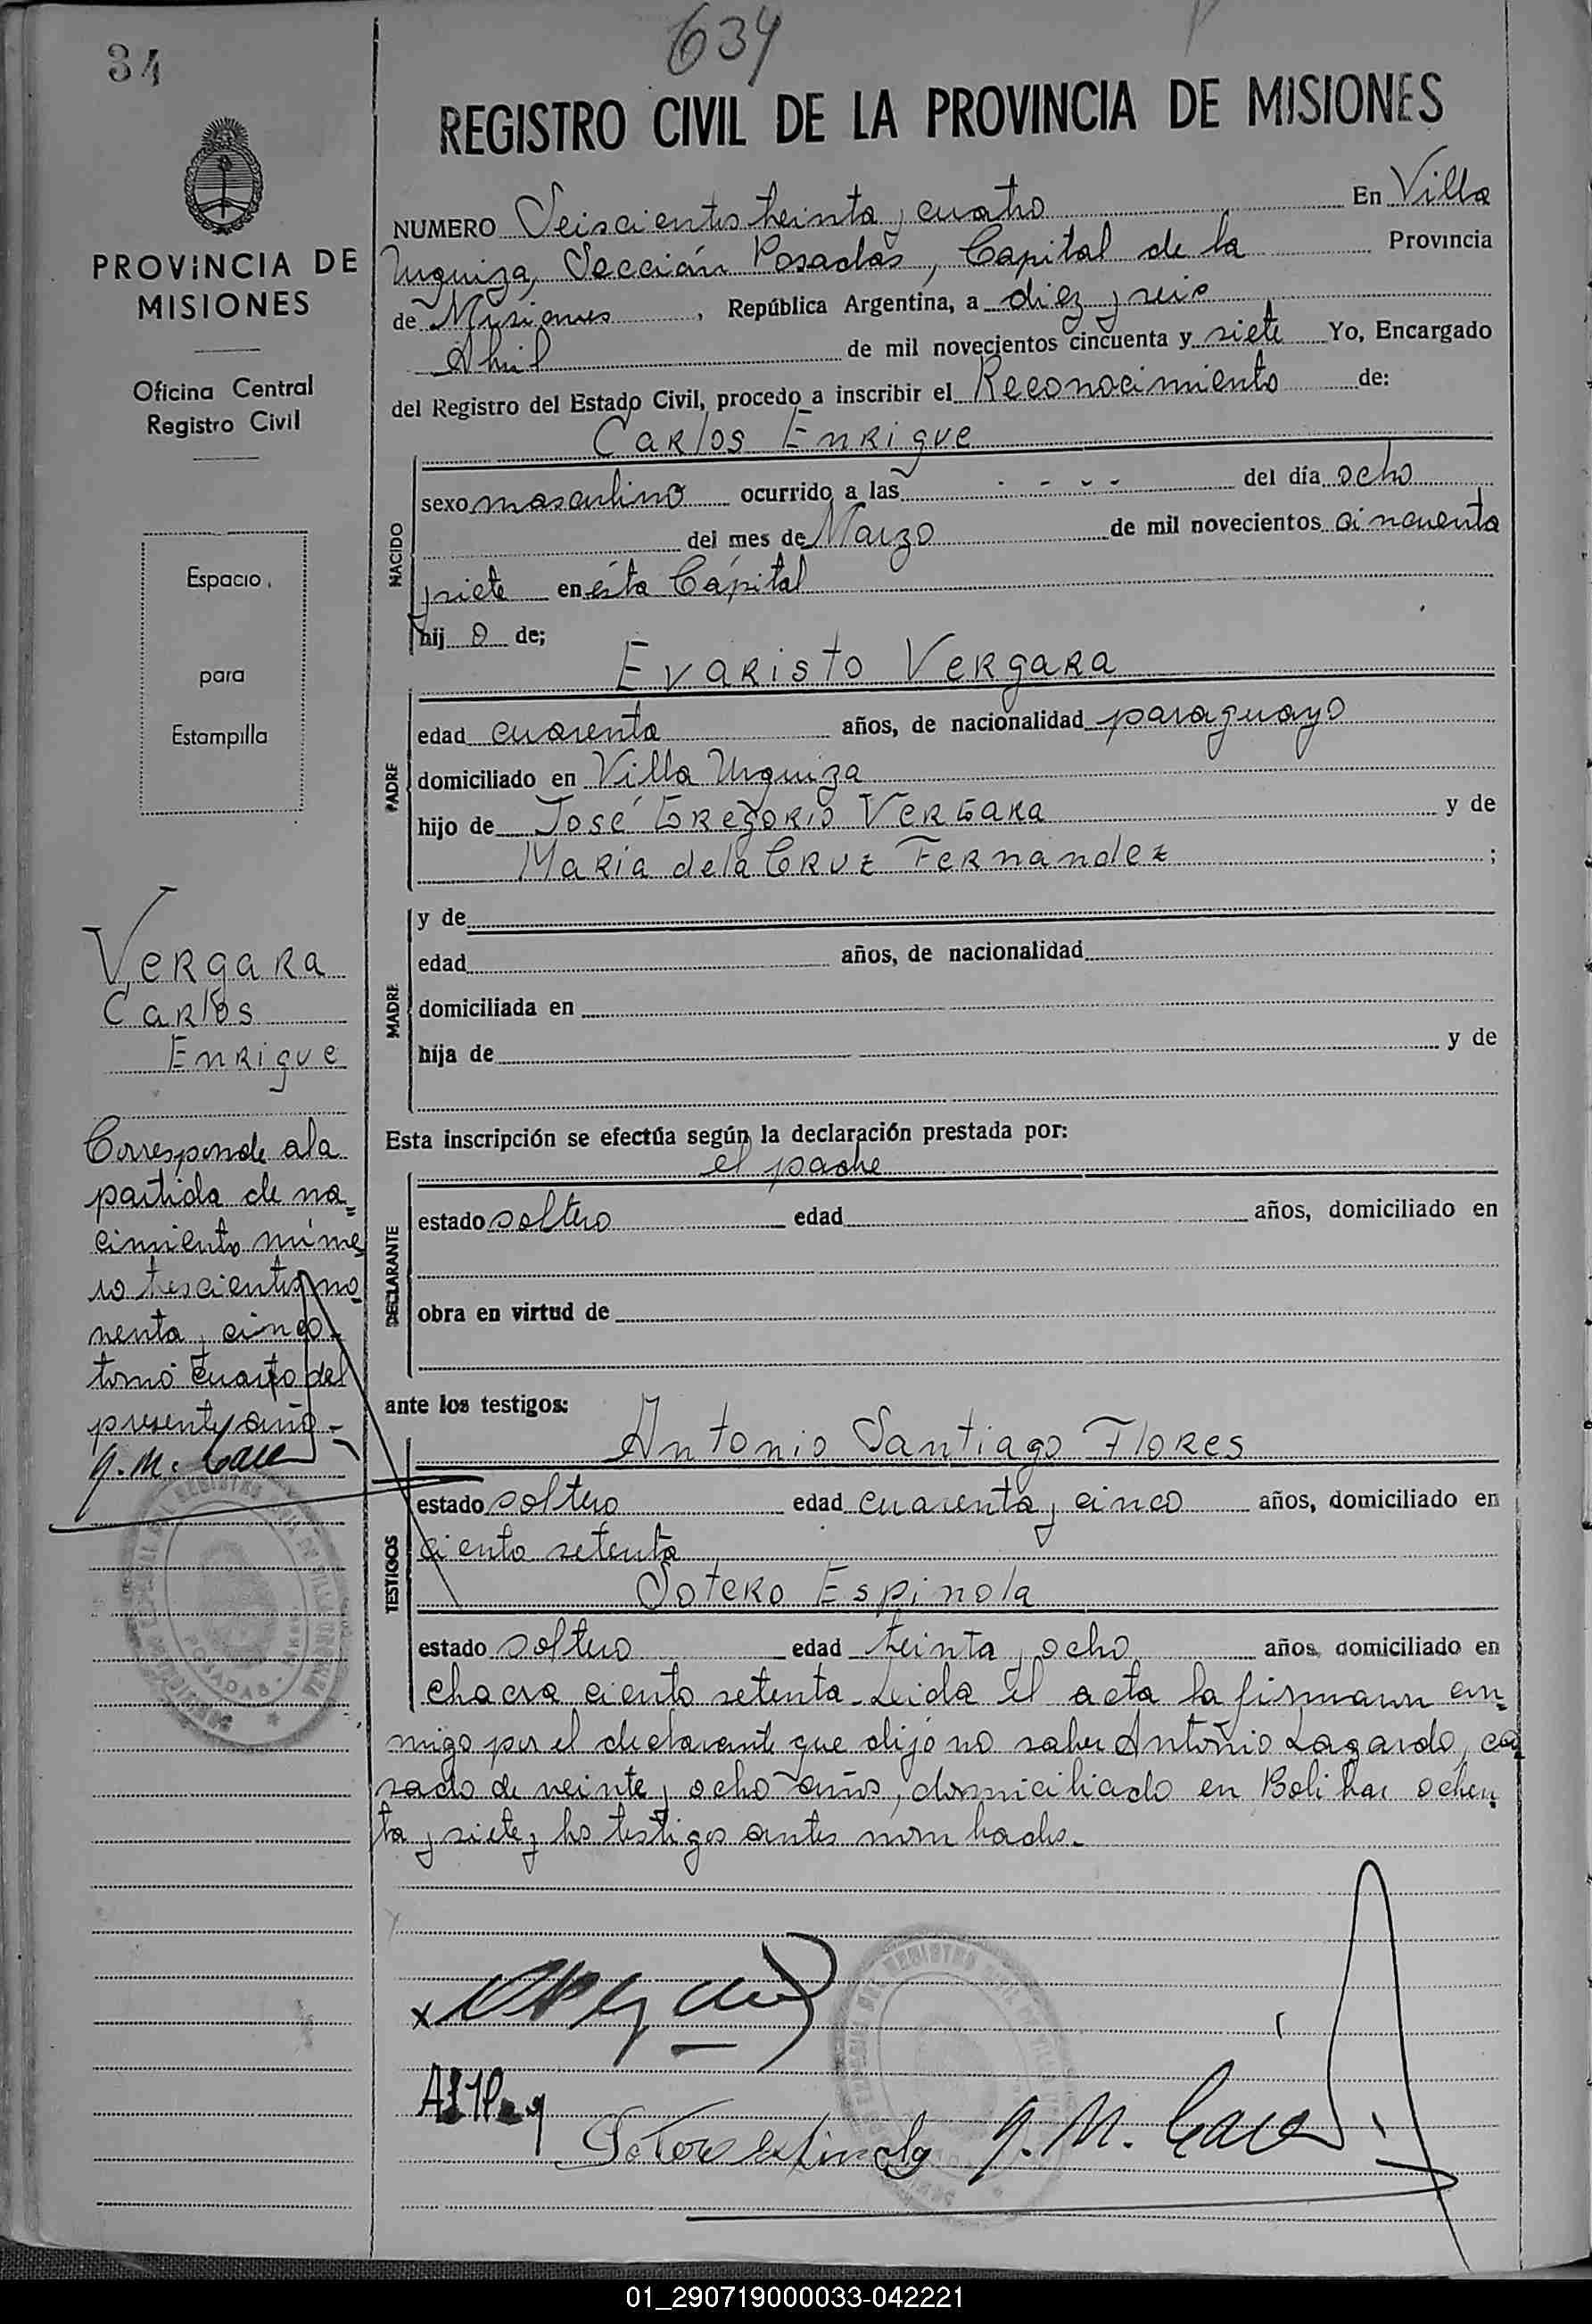 34
634
REGISTRO CIVIL DE LA PROVINCIA DE MISIONES
PROVINCIA DE
MISIONES
Oficina Central
Registro Civil
Espacio
para
Estampilla
Vergara
Carlos
Enrique
Corresponde a la
partida de na=
cimiento núme
ro trescientos no
venta y cinco
tomo cuarto del
presente año -
NUMERO Seiscientos treinta y cuatro En Villa
Urquiza, Sección Posadas, Capital de la Provincia
de Misiones, República Argentina, a diez y seis
Abril de mil novecientos cincuenta y siete Yo, Encargado
del Registro del Estado Civil, procedo a inscribir el Reconocimiento de:
Carlos Enrique
NACIDO
sexo masculino ocurrido a las - - - - del día ocho
del mes de Marzo de mil novecientos cincuenta
y siete en ésta Cápital
hij o de;
Evaristo Vergara
PADRE
edad cuarenta años, de nacionalidad paraguayo
domiciliado en Villa Urquiza
hijo de José Gregorio Vergara y de
Maria de la Cruz Fernandez ;
MADRE
y de
edad años, de nacionalidad
domiciliada en
hija de y de
Esta inscripción se efectúa según la declaración prestada por:
el padre
DECLARANTE
estado soltero edad años, domiciliado en
obra en virtud de
ante los testigos:
Antonio Santiago Flores
TESTIGOS
estado soltero edad cuarenta y cinco años, domiciliado en
ciento setenta
Sotero Espinola
estado soltero edad treinta y ocho años, domiciliado en
chacra ciento setenta. Leida el acta la firmaron con=
migo por el declarante que dijo no saber Antonio Lazardo, ca
sado de veinte y ocho años, domiciliado en Bolivar ochen
ta y siete y los testigos antes nombrados.
Sotero Espinola
01_290719000033-042221